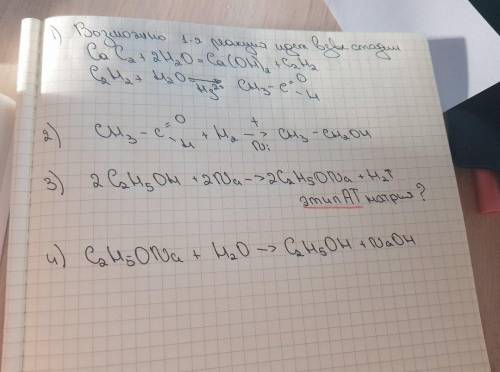 1) Возможно 1-я реакция идет в две стадии
CaC₂ + 2H₂O = Ca(OH)₂ + C₂H₂
C₂H₂ + H₂O →Hg²⁺ CH₃-C=O-H
2) CH₃-C=O-H + H₂ →t Ni CH₃-CH₂OH
3) 2C₂H₅OH + 2Na -> 2C₂H₅ONa + H₂↑
этилАТ натрия?
4) C₂H₅ONa + H₂O -> C₂H₅OH + NaOH